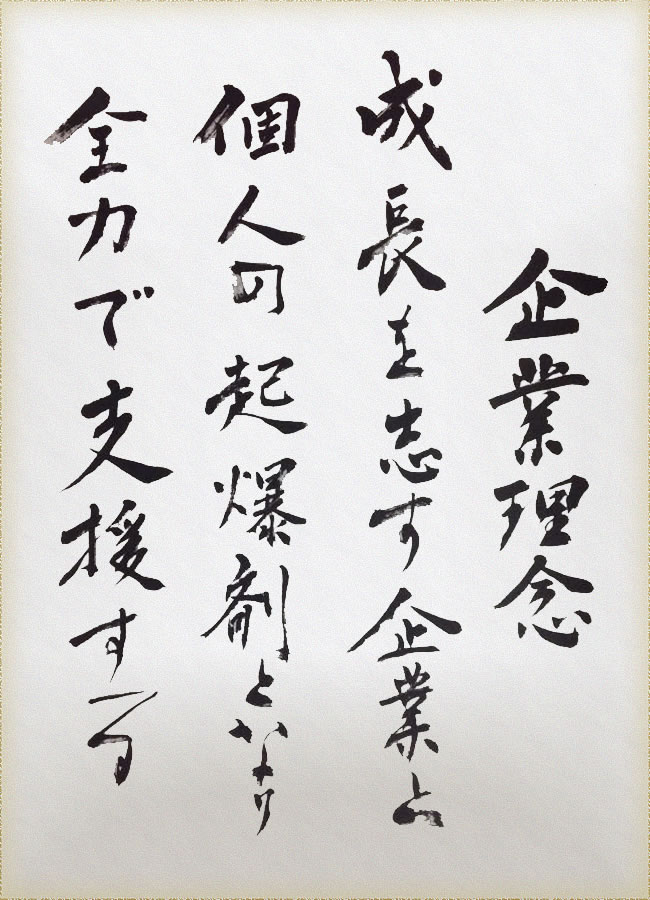 企業理念
成長を志す企業と
個人の起爆剤となり
全力で支援する